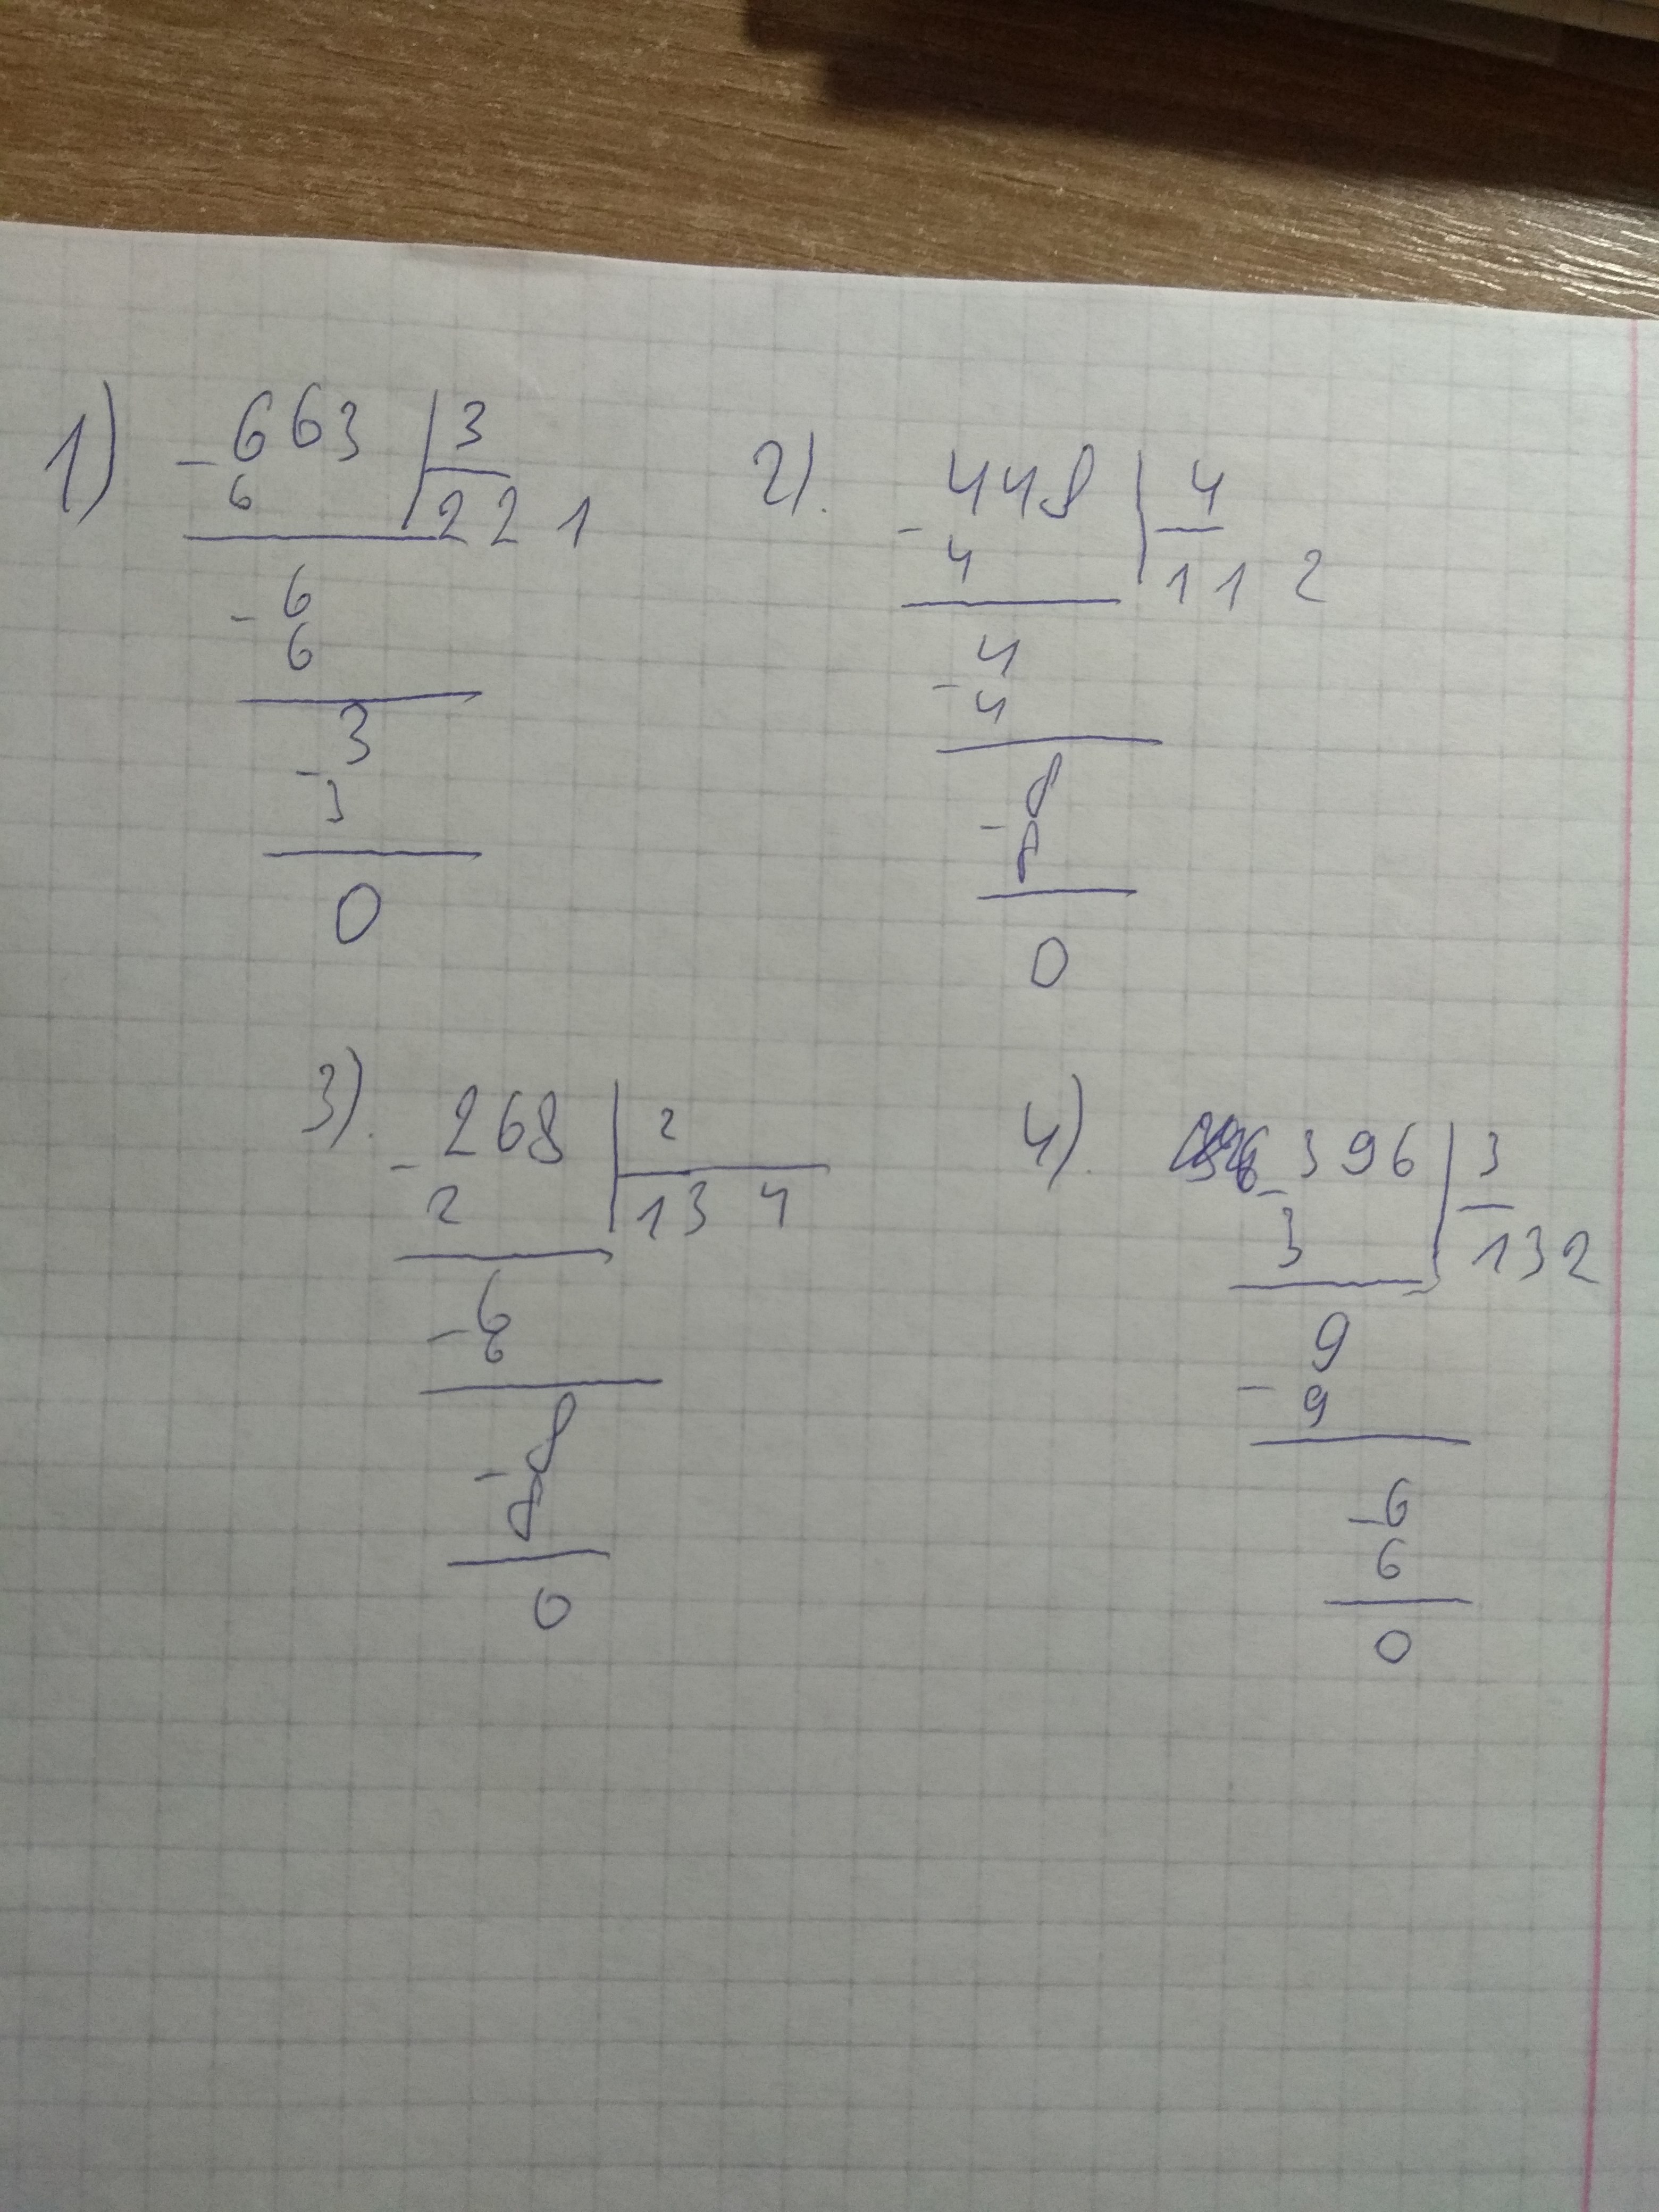 1) - 663 | 3
6 221
- 6
6
- 3
3
0
2). - 448 | 4
4 112
- 4
4
- 8
8
0
3). - 268 | 2
2 134
- 6
6
- 8
8
0
4). - 396 | 3
3 132
9
- 9
- 6
6
0